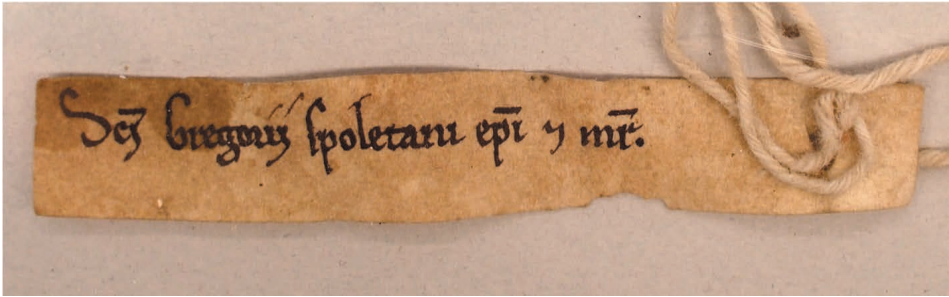 Sc̄i Gregorij spoletani ep̄i ⁊ mr̄.